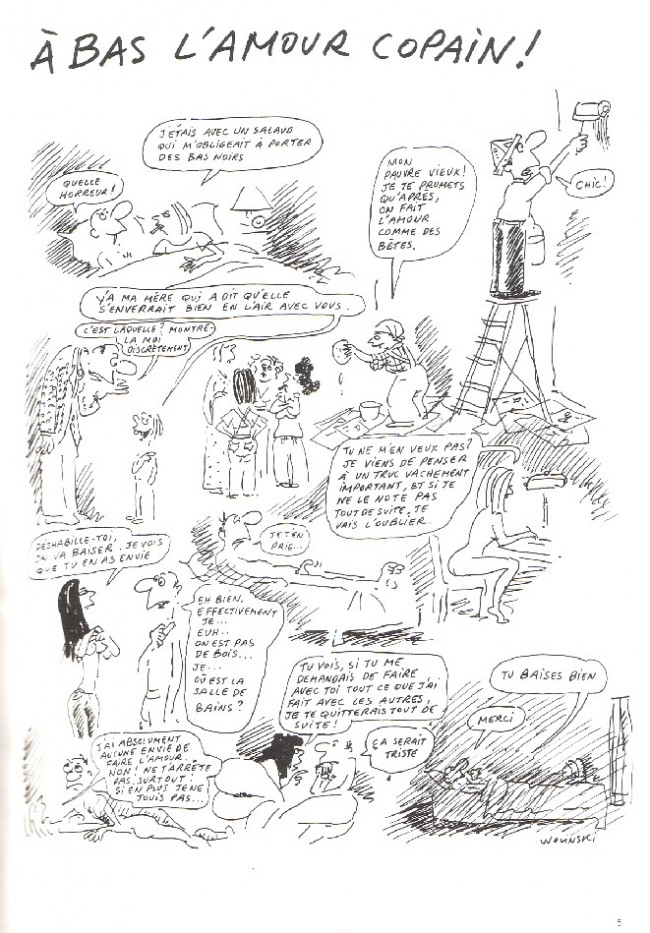 À BAS L'AMOUR COPAIN!
J'ÉTAIS AVEC UN SALAUD
QUI M'OBLIGEAIT À PORTER
DES BAS NOIRS
QUELLE
HORREUR!
MON
PAUVRE VIEUX!
JE TE PROMETS
QU'APRÈS,
ON FAIT
L'AMOUR
COMME DES
BÊTES.
CHIC!
Y'A MA MÈRE QUI A DIT QU'ELLE
S'ENVERRAIT BIEN EN L'AIR AVEC VOUS.
C'EST LAQUELLE? MONTRE-
LA MOI
DISCRÈTEMENT
TU NE M'EN VEUX PAS?
JE VIENS DE PENSER
À UN TRUC VACHEMENT
IMPORTANT, ET SI JE
NE LE NOTE PAS
TOUT DE SUITE, JE
VAIS L'OUBLIER.
JE T'EN
PRIE...
DÉSHABILLE-TOI,
ON VA BAISER. JE VOIS
QUE TU EN AS ENVIE
EH BIEN,
EFFECTIVEMENT
JE...
EUH...
ON EST PAS
DE BOIS...
JE...
OÙ EST LA
SALLE DE
BAINS?
TU VOIS, SI TU ME
DEMANDAIS DE FAIRE
AVEC TOI TOUT CE QUE J'AI
FAIT AVEC LES AUTRES,
JE TE QUITTERAIS TOUT DE
SUITE!
ÇA SERAIT
TRISTE
TU BAISES BIEN
MERCI
J'AI ABSOLUMENT
AUCUNE ENVIE DE
FAIRE L'AMOUR.
NON! NE T'ARRÊTE
PAS, SURTOUT!
SI EN PLUS JE NE
JOUIS PAS...
WOLINSKI
5